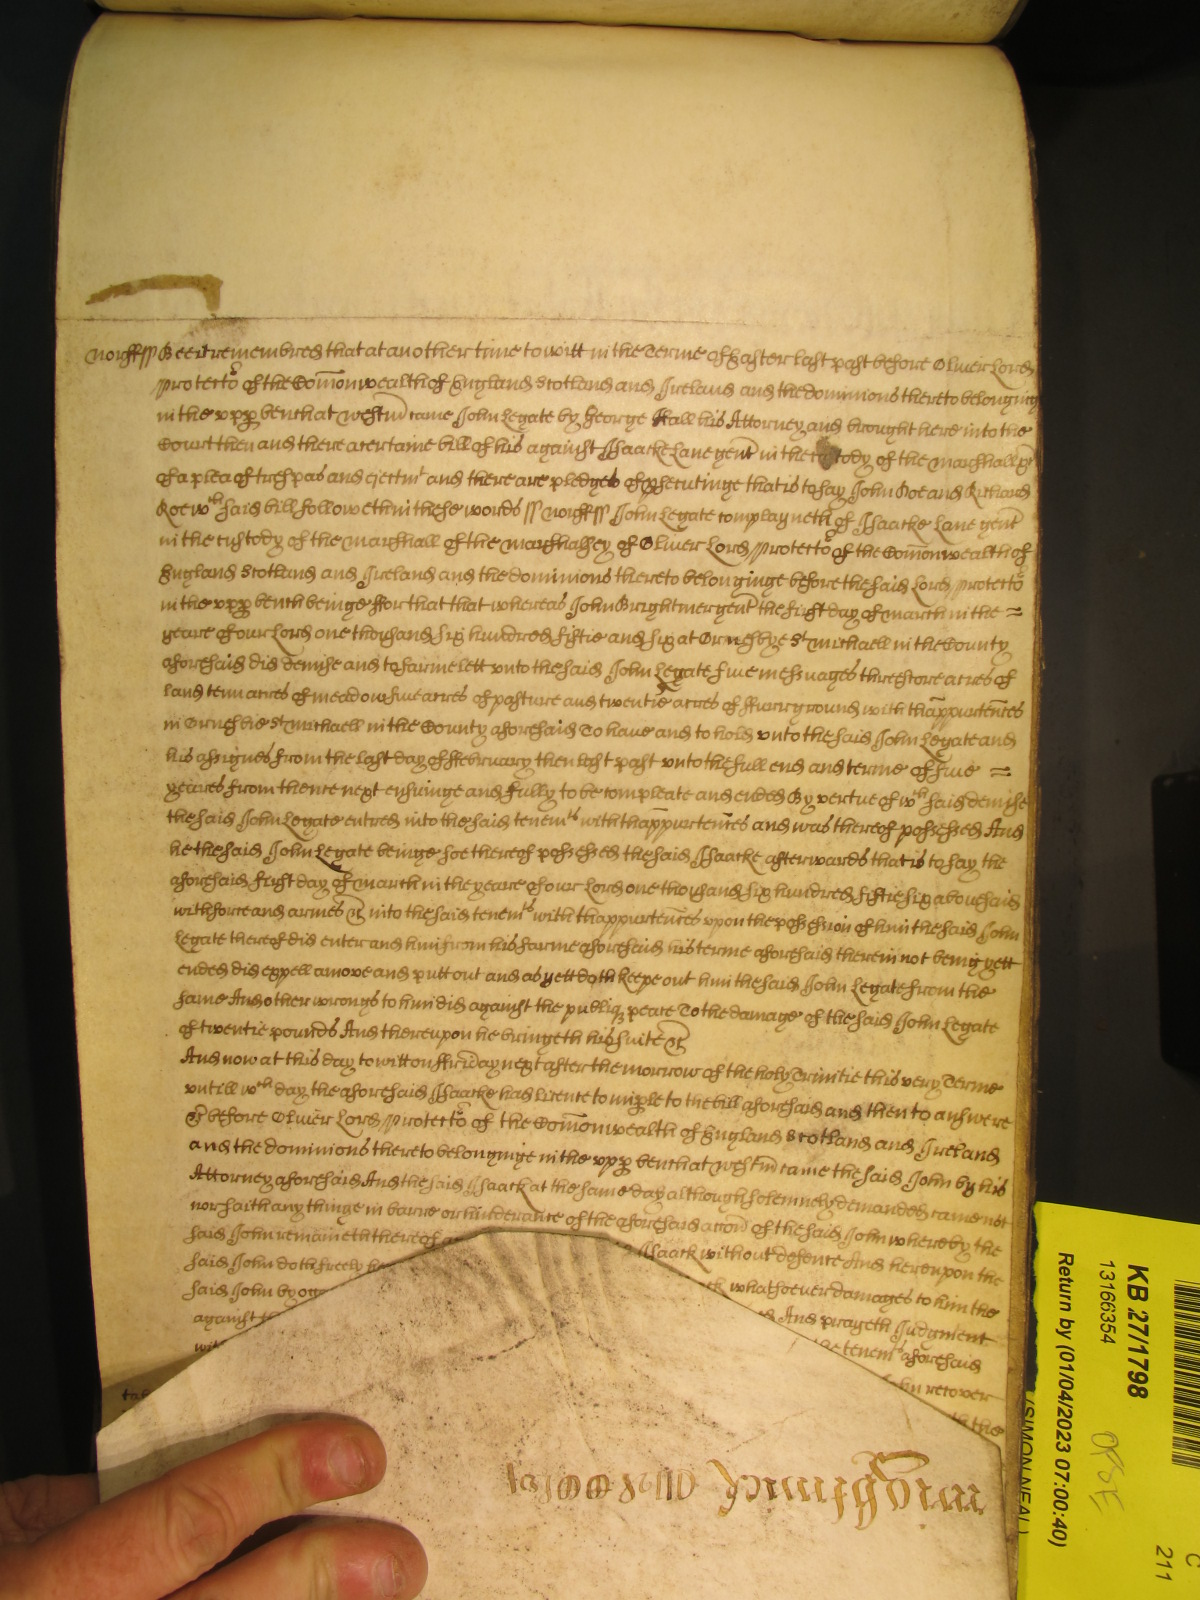 Norff ss Bee it remembred that at another time to witt in the Terme of Easter last past before Oliver Lord
Protector of the Com̄onwealth of England Scotland and Ireland and the dominions thereto belonging
in the upp bench at Westm̄ came John Legate by George Hall his Attorney and brought here into the
Court then and there a certaine bill of his against Isaacke Lane gent in the custody of the Marshall &c
of a plea of trespas and ejectmt and there are pledges of p̱secutinge that is to say John Doe and Richard
Roe wch said bill followeth in these words ss Norff ss John Legate complayneth of Isaacke Lane gent
in the custody of the Marshall of the Marshalsey of Oliver Lord Protector of the Com̄onwealth of
England Scotland and Ireland and the dominions thereto belonginge before the said Lord Protector
in the upp bench beinge ffor that that whereas John Brightmer gent the first day of March in the =
yeare of our Lord one thousand six hundred fiftie and six at Ormesbye St Michaell in the County
aforesaid did demise and to farme lett unto the said John Legate five messuages threescore acres of
land tenn acres of meadow five acres of pasture and twentie acres of ffurry ground with thappurtences
in Ormesbie St Michaell in the County aforesaid To have and to hold unto the said John Legate and
his assignes from the last day of ffebruary then last past unto the full end and terme of five =
yeares from thence next ensuinge and fully to be compleate and ended By vertue of wch said demise
the said John Legate entred into the said tenemts with thappurtences and was thereof possessed And
he the said John Legate beinge soe thereof possessed the said Isaacke afterwards that is to say the
aforesaid first day of March in the yeare of our Lord one thousand six hundred fiftie six abovesaid
with force and armes &c into the said tenemts with thappurtences upon the possession of him the said John
Legate thereof did enter and him from his farme aforesaid his terme aforesaid therein not being yett
ended did expell amove and putt out and as yett doth keepe out him the said John Legate from the
same And other wrongs to him did against the publiq peace To the damage of the said John Legate
of twentie pounds And thereupon he bringeth his suite &c
And now at this day to witt on ffriday next after the morrow of the holy Trinitie this very Terme
untill wch day the aforesaid Isaacke had licence to imple to the bill aforesaid and then to answere
&c before Oliver Lord Protector of the Com̄onwealth of England Scotland and Ireland
and the dominions thereto belonginge in the upp bench at Westm̄ came the said John by his
Attorney aforesaid And the said Isaack at the same day although solemnely demanded came not
nor saith any thinge in barre or hinderance of the aforesaid accon of the said John whereby the
said John remaineth thereof Isaack without defence And hereupon the
said John doth freely whatsoever damages to him the
said John by And prayeth Judgment
against the tenemts aforesaid
John recover
the
KB 27/1798
13166354
Return by (01/04/2023 07:00:40)
(SIMON NEAL)
C
211